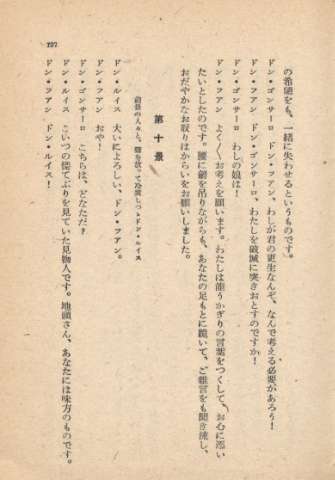 の希望をも、一緒に失わせるというものです。
ドン・ゴンサーロ　ドン・フアン、わしが君の更生なんぞ、なんで考える必要があろう！
ドン・フアン　ドン・ゴンサーロ、わたしを破滅に突きおとすのですか！
ドン・ゴンサーロ　わしの娘は！
ドン・フアン　よく〳〵お考えを願います。わたしは能うかぎりの言葉をつくして、お心に添い
たいとしたのです。腰に剣を吊りながらも、あなたの足もとに跪いて、ご雑言をも聞き流し、
おだやかなお取りはからいをお願いしました。
第十景
前景の人々と、聲を放って冷笑しつゝドン・ルイス
ドン・ルイス　大いによろしい、ドン・フアン。
ドン・フアン　おや！
ドン・ゴンサーロ　こちらは、どなただ？
ドン・ルイス　こいつの隠てぶりを見ていた見物人です。地頭さん、あなたには味方のものです。
ドン・フアン　ドン・ルイス！
197